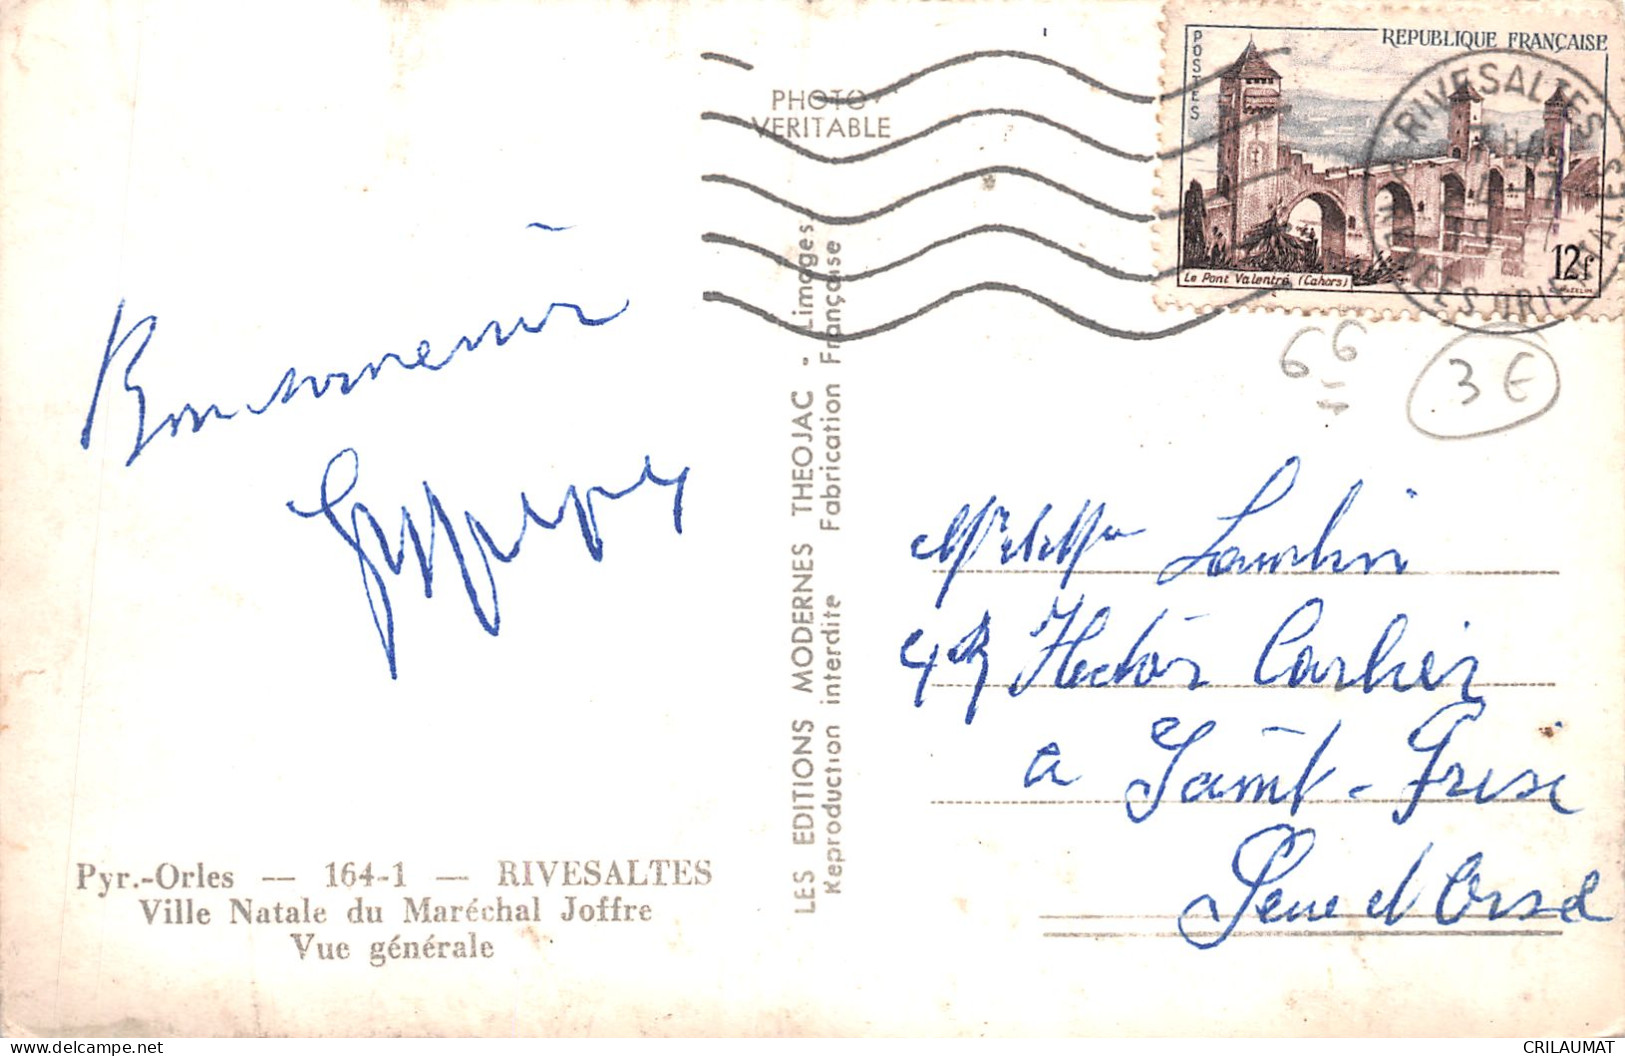 POSTES
REPUBLIQUE FRANÇAISE
Le Pont Valentré (Cahors)
12f
RIVESALTES
PHOTO
VERITABLE
66
3 €
Bon souvenir
LES EDITIONS MODERNES THEOJAC - Limoges
Reproduction interdite Fabrication Française
Mr et Mme
4 R Hector Carlier
a Saint-
Seine et Oise
Pyr.-Orles — 164-1 — RIVESALTES
Ville Natale du Maréchal Joffre
Vue générale
CRILAUMAT